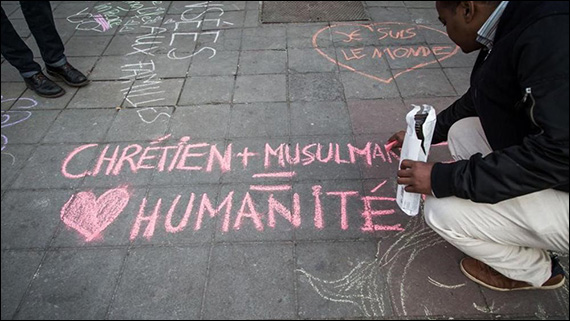 JE SUIS
LE MONDE
SÉES
AUX FAMIL
CHRÉTIEN + MUSULMAN
=
HUMANITÉ